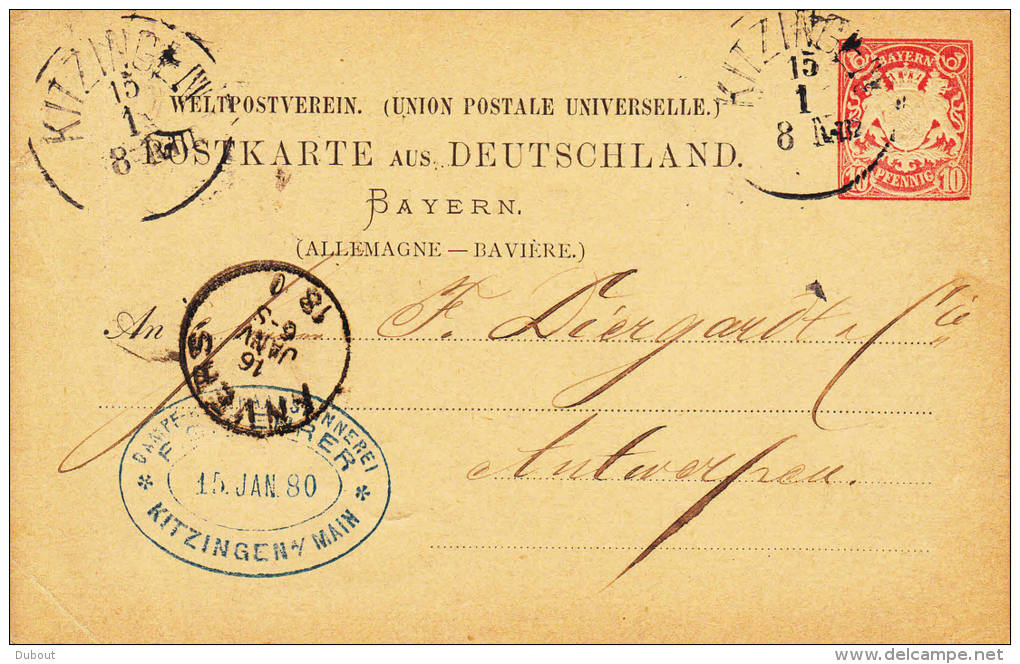 KITZINGEN
15
1
8
KITZINGEN
15
1
8
BAYERN
10 PFENNIG 10
WELTPOSTVEREIN. (UNION POSTALE UNIVERSELLE.)
POSTKARTE AUS DEUTSCHLAND.
BAYERN.
(ALLEMAGNE — BAVIÈRE.)
An F. Diergardt & Cie
Antwerpen.
ANVERS
16
JANV
6-S
18 0
15. JAN. 80
KITZINGEN a/ MAIN
Dubout
delcampe.net